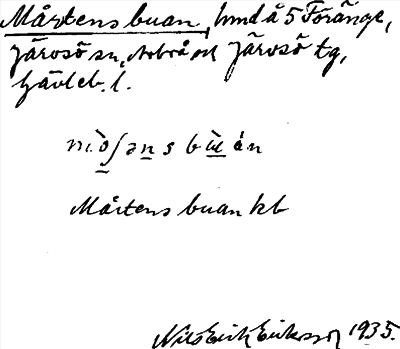 Mårtensbuan, hmd å 5 Föränge,
Järvsö sn, Arbrå och Järvsö tg,
Gävleb. l.
mò̱ʃəṉs bùán
Mårtensbuan kb
Nils Erik Eriksson 1935.